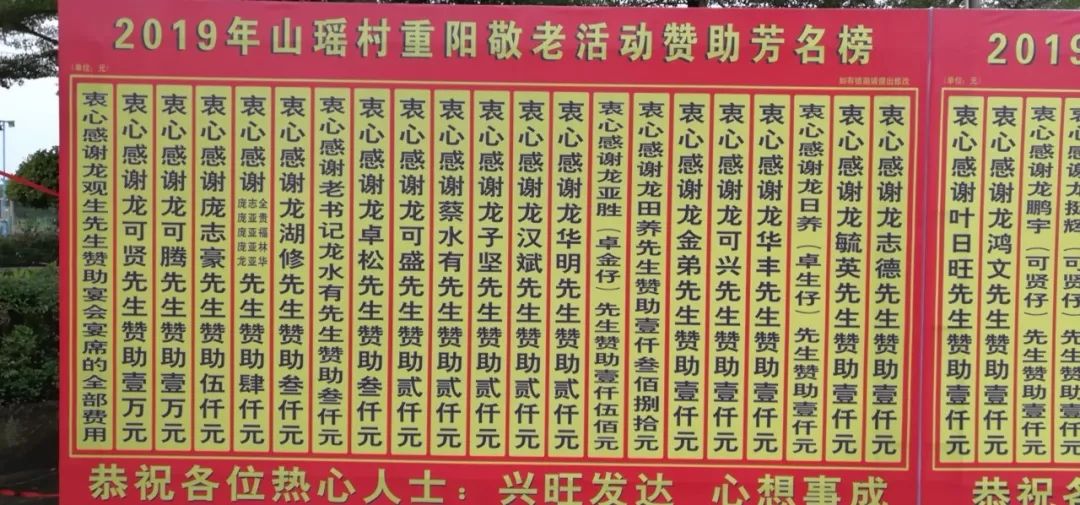 2019年山瑶村重阳敬老活动赞助芳名榜
(单位：元)
如有错漏请提出修改
衷心感谢龙观生先生赞助宴会宴席的全部费用
衷心感谢龙可贤先生赞助壹万元
衷心感谢龙可腾先生赞助壹万元
衷心感谢庞志豪先生赞助伍仟元
衷心感谢庞志全 庞亚贵 庞亚福 庞亚林 龙亚华先生赞助肆仟元
衷心感谢龙湖修先生赞助叁仟元
衷心感谢老书记龙水有先生赞助叁仟元
衷心感谢龙卓松先生赞助叁仟元
衷心感谢龙可盛先生赞助贰仟元
衷心感谢蔡水有先生赞助贰仟元
衷心感谢龙子坚先生赞助贰仟元
衷心感谢龙汉斌先生赞助贰仟元
衷心感谢龙华明先生赞助贰仟元
衷心感谢龙亚胜（卓金仔）先生赞助壹仟伍佰元
衷心感谢龙田养先生赞助壹仟叁佰捌拾元
衷心感谢龙金弟先生赞助壹仟元
衷心感谢龙可兴先生赞助壹仟元
衷心感谢龙华丰先生赞助壹仟元
衷心感谢龙日养（卓生仔）先生赞助壹仟元
衷心感谢龙毓英先生赞助壹仟元
衷心感谢龙志德先生赞助壹仟元
恭祝各位热心人士：兴旺发达 心想事成
2019
(单位：元)
衷心感谢叶日旺先生赞助壹仟元
衷心感谢龙鸿文先生赞助壹仟元
衷心感谢龙鹏宇（可贤仔）先生赞助壹仟元
衷心感谢龙挺辉（可贤仔）先生赞助壹仟元
恭祝各